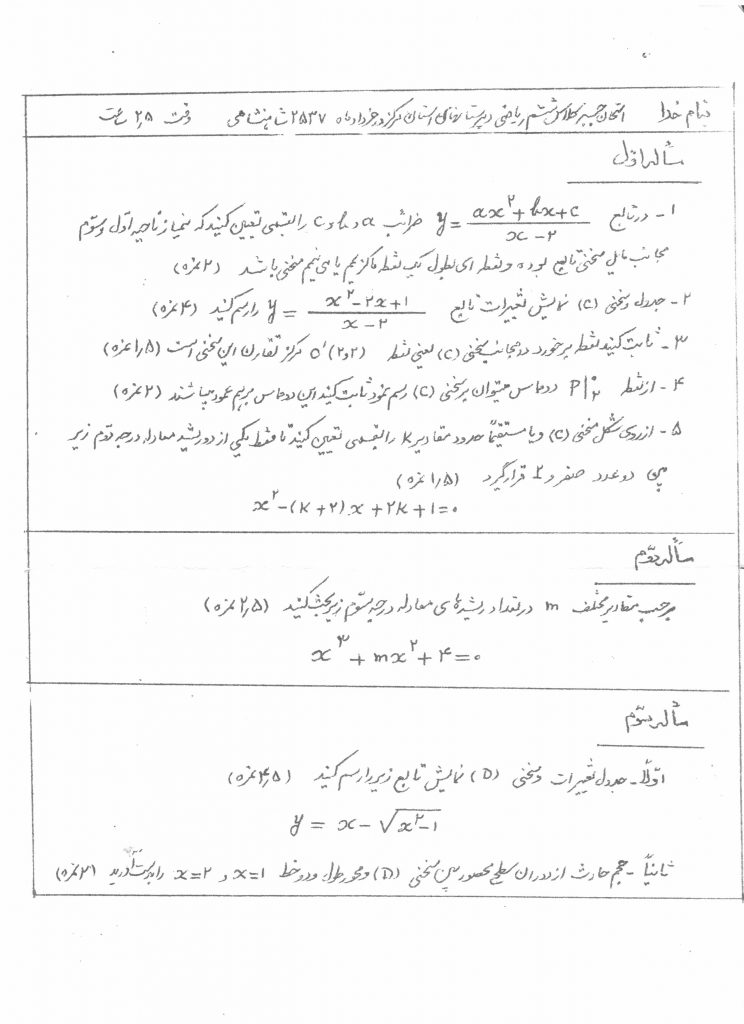 بنام خدا امتحان جبر کلاس ششم ریاضی دبیرستانهای استان مرکز در خرداد ماه ۲۵۳۷ شاهنشاهی وقت ۲٫۵ ساعت
مسأله اول
۱- در تابع y = (ax²+bx+c)/(x-۲) ضرائب a و b و c را بقسمی تعیین کنید که نیمساز ناحیه اول و سوم
مجانب مایل منحنی تابع بوده و نقطه ای بطول یک نقطه ماکزیمم یا می نیمم منحنی باشد (۲ نمره)
۲- جدول و منحنی (C) نمایش تغییرات تابع y = (x²-۲x+۱)/(x-۲) را رسم کنید (۴ نمره)
۳- ثابت کنید نقطه برخورد دو مجانب منحنی (C) یعنی نقطه (۲و۲)O' مرکز تقارن این منحنی است (۱٫۵ نمره)
۴- از نقطه P|۲ ۰ دو مماس میتوان بر منحنی (C) رسم نمود ثابت کنید این دو مماس برهم عمود میباشند (۲ نمره)
۵- از روی شکل منحنی (C) و یا مستقیماً حدود مقادیر K را بقسمی تعیین کنید تا فقط یکی از دو ریشه معادله درجه دوم زیر
بین دو عدد صفر و ۱ قرار گیرد (۱٫۵ نمره)
x²-(K+۲)x+۲K+۱=۰
مسأله دوم
برحسب مقادیر مختلف m در تعداد ریشه های معادله درجه سوم زیر بحث کنید (۲٫۵ نمره)
x³+mx²+۴=۰
مسأله سوم
اولاً- جدول تغییرات و منحنی (D) نمایش تابع زیر را رسم کنید (۴٫۵ نمره)
y = x-√(x²-۱)
ثانیاً- حجم حادث از دوران سطح محصور بین منحنی (D) و محور طول و دو خط x=۱ و x=۲ را بدست آورید (۲ نمره)